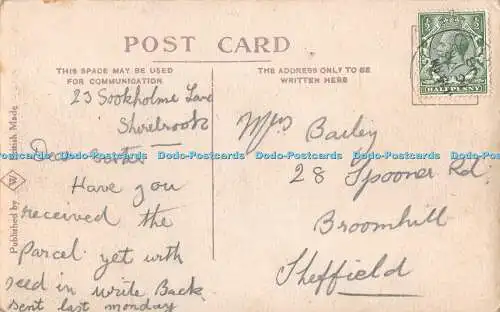 POST CARD
THIS SPACE MAY BE USED
FOR COMMUNICATION
THE ADDRESS ONLY TO BE
WRITTEN HERE
HALFPENNY
23 Sookholme Lane
Shirebrook
Dear Sister
Have you
received the
Parcel yet with
seed in write Back
sent last monday
Bailey
28 Spooner Rd
Broomhill
Sheffield
Published by
British Made
Dodo-Postcards Dodo-Postcards Dodo-Postcards Dodo-Postcards Dodo-Postcards